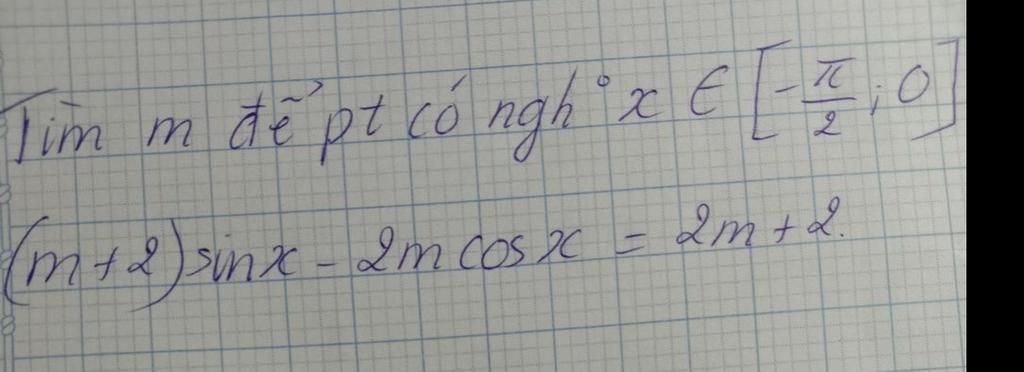 Tìm m để pt có ngh° x ∈ [-π/2; 0]
(m+2)sinx - 2m cosx = 2m+2.